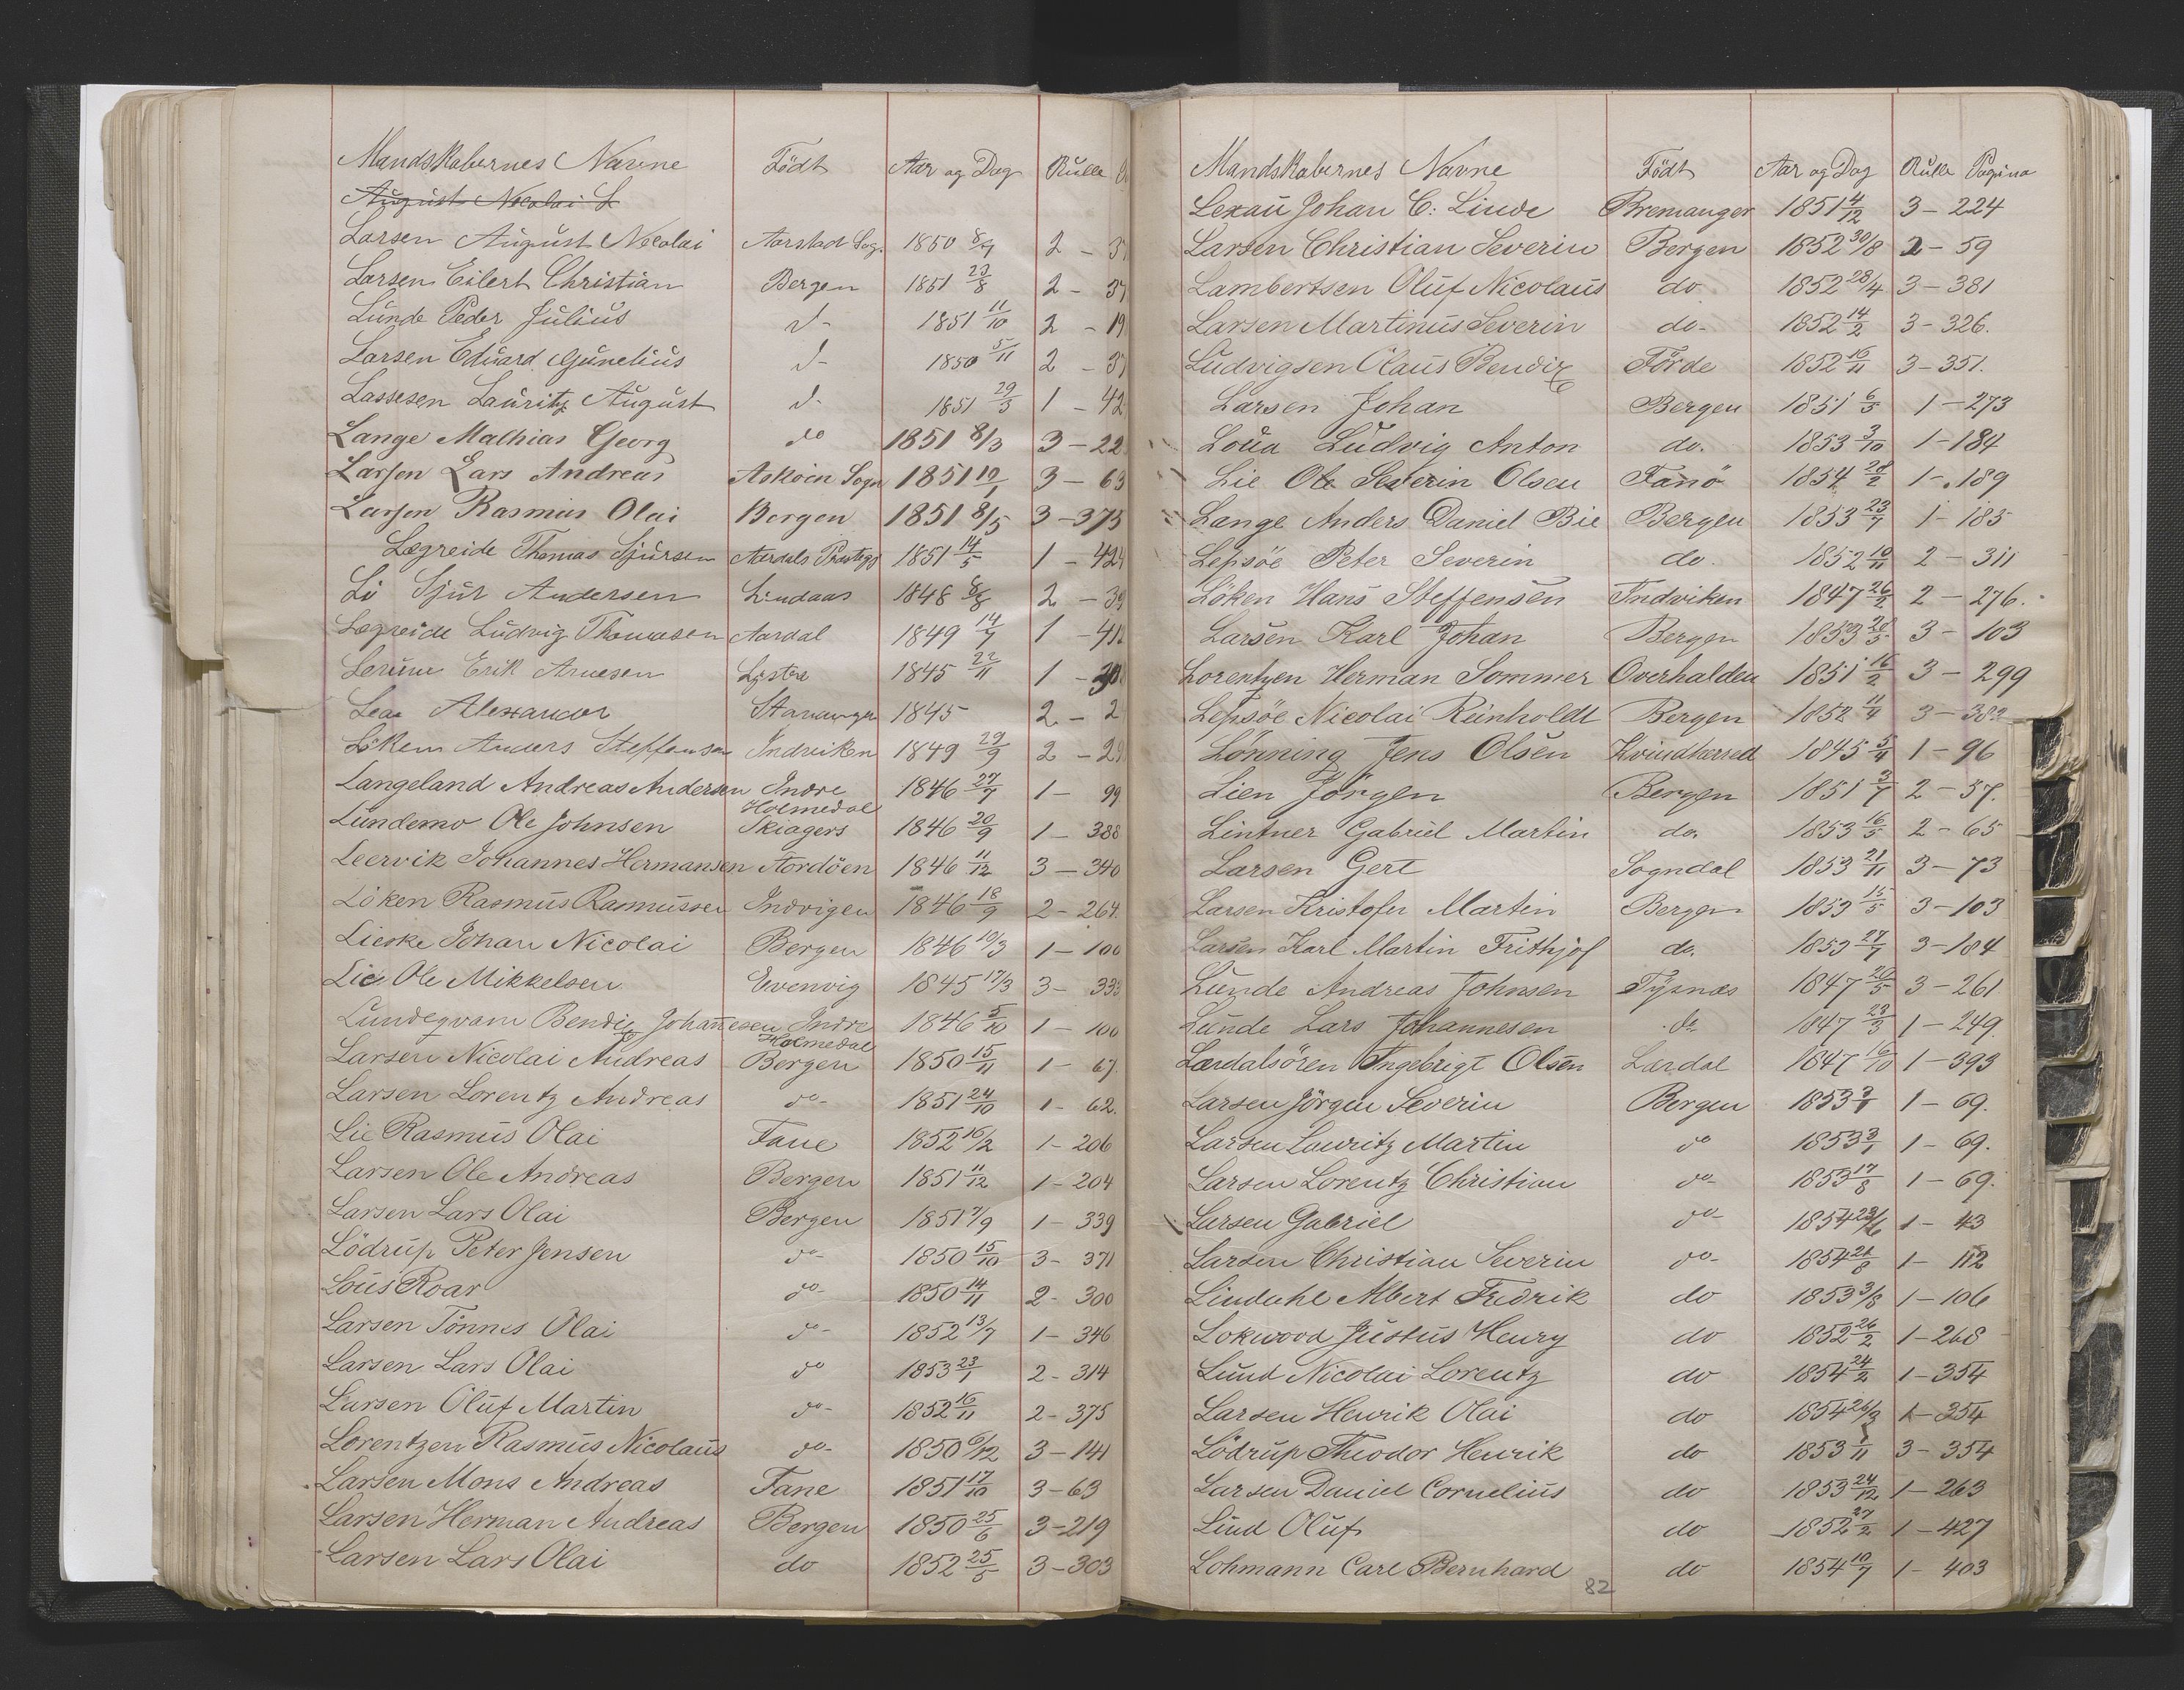 Mandskabernes Navne Födt Aar og Dag Rulle
August Nicolai L
Larsen August Nicolai Aarstad Sogn 1850 8/9 2 - 37
Larsen Eilert Christian Bergen 1851 23/8 2 - 37
Lunde Peder Julius d- 1851 11/10 2 - 19
Larsen Edvard Gunelius d- 1850 5/11 2 - 37
Lassesen Lauritz August d- 1851 29/3 1 - 42
Lange Mathias Georg do 1851 8/3 3 - 22
Larsen Lars Andreas Asköen Sogn 1851 10/1 3 - 63
Larsen Rasmus Olai Bergen 1851 8/5 3 - 375
Lægreide Thomas Sjursen Aardals Præstegj 1851 14/5 1 - 424
Li Sjur Andersen Lindaas 1848 6/8 2 - 39
Lægreide Ludvig Thomasen Aardal 1849 14/7 1 - 41
Lerum Erik Arnesen Lyster 1845 22/11 1 -
Lea Alexander Stavanger 1845 2 - 2
Löken Anders Steffensen Indviken 1849 29/9 2 - 29
Langeland Andreas Andersen Indre Holmedal 1846 27/7 1 - 99
Lundemo Ole Johnsen Skiagers 1846 20/9 1 - 388
Leervik Johannes Hermansen Stordöen 1846 11/12 3 - 340
Löken Rasmus Rasmussen Indvigen 1846 18/9 2 - 264.
Lieske Johan Nicolai Bergen 1846 10/3 1 - 100
Lie Ole Mikkelsen Evenvig 1845 17/3 3 - 333
Lundeqvam Bendix Johannesen Indre Holmedal 1846 5/10 1 - 100
Larsen Nicolai Andreas Bergen 1850 15/11 1 - 67.
Larsen Lorentz Andreas do- 1851 24/10 1 - 62.
Lie Rasmus Olai Fane 1852 16/2 1 - 206
Larsen Ole Andreas Bergen 1851 11/12 1 - 204
Larsen Lars Olai Bergen 1851 7/9 1 - 339
Lödrup Peter Jensen do- 1850 15/10 3 - 371
Lous Roar do- 1850 14/11 2 - 300
Larsen Tönnes Olai do- 1852 13/7 1 - 346
Larsen Lars Olai do 1853 23/1 2 - 314
Larsen Oluf Martin do- 1852 16/11 2 - 375
Lorentzen Rasmus Nicolaus do- 1850 6/12 3 - 141
Larsen Mons Andreas Fane 1851 17/10 3 - 63
Larsen Herman Andreas Bergen 1850 25/6 3 - 219
Larsen Lars Olai do 1852 25/5 3 - 303
Mandskabernes Navne Födt Aar og Dag Rulle Pagina
Lexau Johan C: Linde Bremanger 1851 4/12 3 - 224
Larsen Christian Severin Bergen 1852 30/8 2 - 59
Lambertsen Oluf Nicolaus do. 1852 28/4 3 - 381
Larsen Martinus Severin do- 1852 14/2 3 - 326.
Ludvigsen Olaus Bendix Förde 1852 16/11 3 - 351.
Larsen Johan Bergen 1851 6/5 1 - 273
Loua Ludvig Anton do. 1853 3/10 1 - 184
Lie Ole Severin Olsen Fanö 1854 28/2 1 - 189
Lange Anders Daniel Bie Bergen 1853 23/7 1 - 185
Lepsöe Peter Severin do. 1852 10/11 2 - 311
Löken Hans Steffensen Indviken 1847 26/2 2 - 276.
Larsen Karl Johan Bergen 1853 20/5 3 - 103
Lorentzen Herman Sommer Overhalden 1851 16/2 3 - 299
Lepsöe Nicolai Reinholdt Bergen 1852 11/4 3 - 382
Lönning Jens Olsen Kvindherred 1845 5/4 1 - 96
Lien Jörgen Bergen 1851 3/7 2 - 37.
Lintner Gabriel Martin do. 1853 16/5 2 - 65
Larsen Gert Sogndal 1853 21/11 3 - 73
Larsen Kristofer Martin Bergen 1853 15/5 3 - 103
Larsen Karl Martin Frithjof do. 1853 27/7 3 - 184
Lunde Andreas Johnsen Tysnæs 1847 20/5 3 - 261
Lunde Lars Johannesen do 1847 23/3 1 - 249.
Lærdalsören Ingebrigt Olsen Lærdal 1847 16/10 1 - 393
Larsen Jörgen Severin Bergen 1853 3/1 1 - 69.
Larsen Lauritz Martin do 1853 3/1 1 - 69.
Larsen Lorentz Christian do- 1853 17/8 1 - 69.
Larsen Gabriel do- 1854 23/6 1 - 43
Larsen Christian Severin do- 1854 21/8 1 - 112
Lindahl Albert Fredrik do 1853 3/8 1 - 106
Lokwood Justus Henry do 1852 26/2 1 - 268
Lund Nicolai Lorentz do 1854 24/2 1 - 354
Larsen Henrik Olai do 1854 26/3 1 - 354
Lödrup Theodor Henrik do 1853 1/11 3 - 354
Larsen Daniel Cornelius do 1853 24/12 1 - 263
Lind Oluf do 1852 27/2 1 - 427
Lohmann Carl Bernhard do 1854 10/7 1 - 403
82